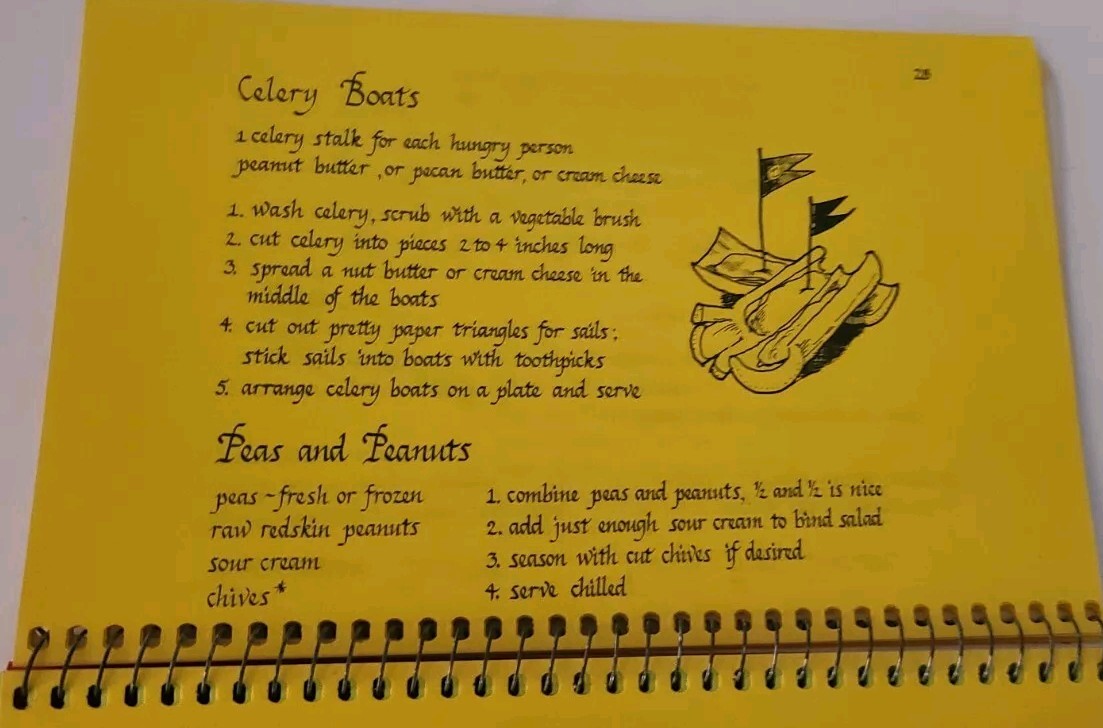 28
Celery Boats
1 celery stalk for each hungry person
peanut butter, or pecan butter, or cream cheese
1. wash celery, scrub with a vegetable brush
2. cut celery into pieces 2 to 4 inches long
3. spread a nut butter or cream cheese in the
middle of the boats
4. cut out pretty paper triangles for sails;
stick sails into boats with toothpicks
5. arrange celery boats on a plate and serve
Peas and Peanuts
peas ~ fresh or frozen
raw redskin peanuts
sour cream
chives*
1. combine peas and peanuts, ½ and ½ is nice
2. add just enough sour cream to bind salad
3. season with cut chives if desired
4. serve chilled